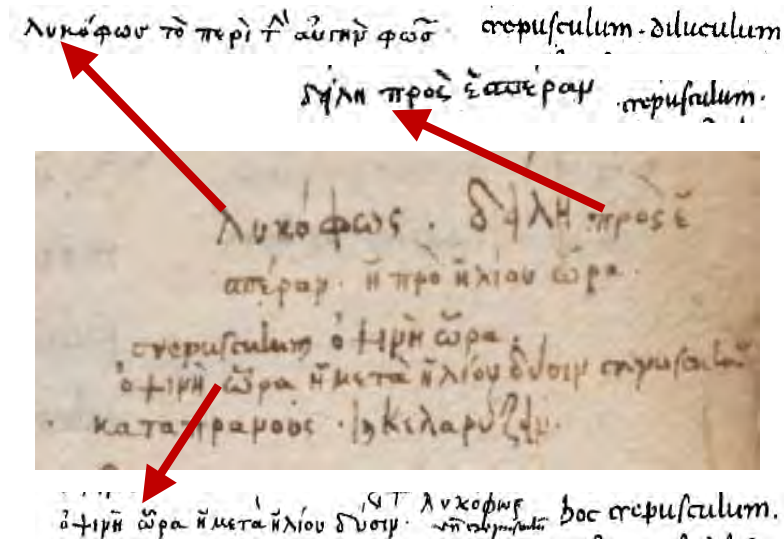 λυκόφως τὸ περὶ τὴν αὐγὴν φῶς · crepusculum · diluculum
δείλη πρὸς ἑσπέραν · crepusculum ·
λυκόφως . δείλη πρὸς ἑ
σπέραν · ἢ πρὸ ἡλίου ὥρα ·
crepusculum ὀψινὴ ὥρα .
ὀψινὴ ὥρα ἢ μετὰ ἡλίου δύσιν
ὀψινὴ ὥρα ἢ μετὰ ἡλίου δύσιν · λυκόφως hoc crepusculum .